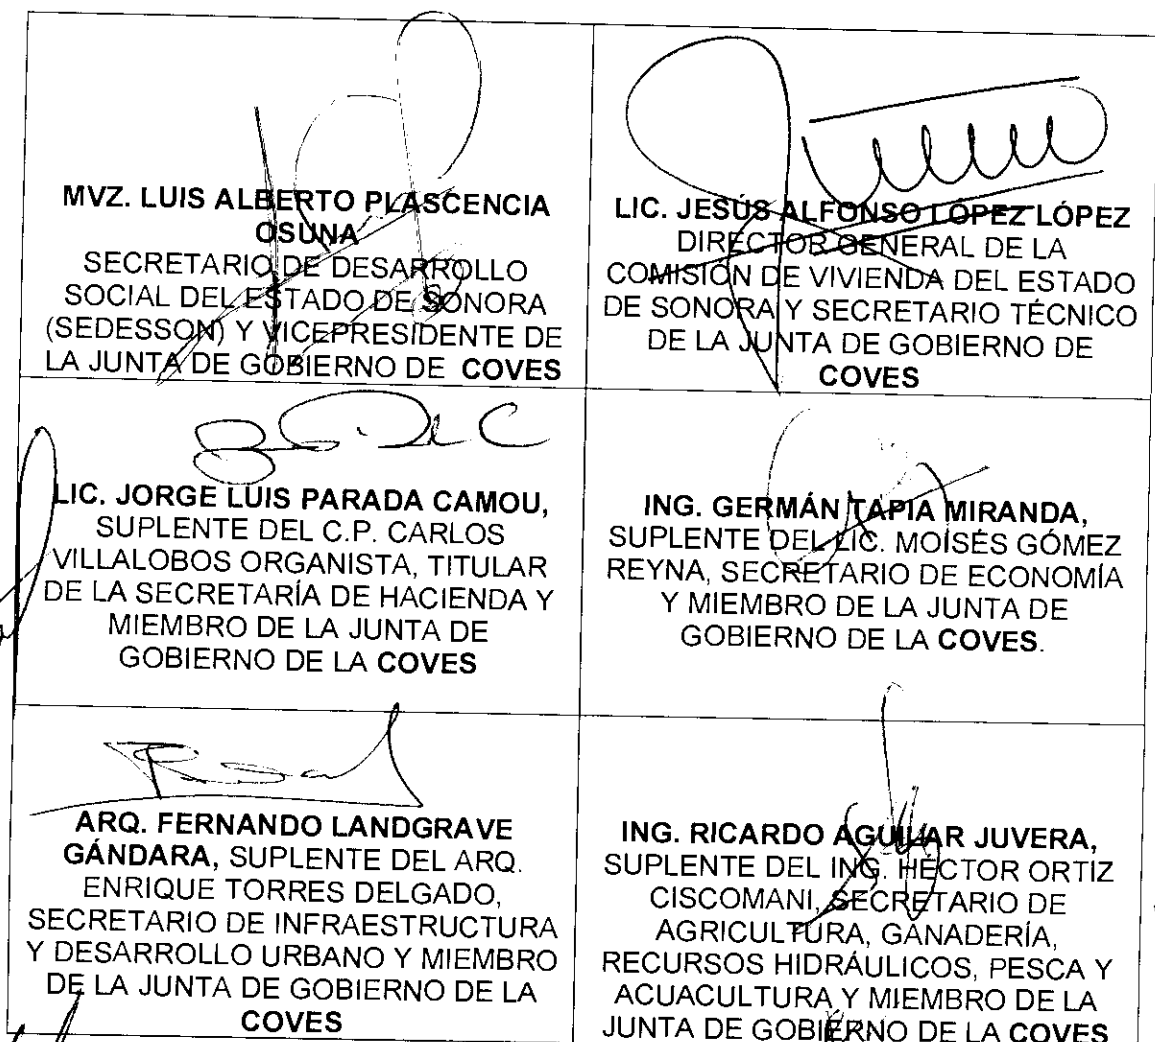 MVZ. LUIS ALBERTO PLASCENCIA
OSUNA
SECRETARIO DE DESARROLLO
SOCIAL DEL ESTADO DE SONORA
(SEDESSON) Y VICEPRESIDENTE DE
LA JUNTA DE GOBIERNO DE COVES
LIC. JESÚS ALFONSO LÓPEZ LÓPEZ
DIRECTOR GENERAL DE LA
COMISIÓN DE VIVIENDA DEL ESTADO
DE SONORA Y SECRETARIO TÉCNICO
DE LA JUNTA DE GOBIERNO DE
COVES
LIC. JORGE LUIS PARADA CAMOU,
SUPLENTE DEL C.P. CARLOS
VILLALOBOS ORGANISTA, TITULAR
DE LA SECRETARÍA DE HACIENDA Y
MIEMBRO DE LA JUNTA DE
GOBIERNO DE LA COVES
ING. GERMÁN TAPIA MIRANDA,
SUPLENTE DEL LIC. MOISÉS GÓMEZ
REYNA, SECRETARIO DE ECONOMÍA
Y MIEMBRO DE LA JUNTA DE
GOBIERNO DE LA COVES.
ARQ. FERNANDO LANDGRAVE
GÁNDARA, SUPLENTE DEL ARQ.
ENRIQUE TORRES DELGADO,
SECRETARIO DE INFRAESTRUCTURA
Y DESARROLLO URBANO Y MIEMBRO
DE LA JUNTA DE GOBIERNO DE LA
COVES
ING. RICARDO AGUILAR JUVERA,
SUPLENTE DEL ING. HÉCTOR ORTIZ
CISCOMANI, SECRETARIO DE
AGRICULTURA, GANADERÍA,
RECURSOS HIDRÁULICOS, PESCA Y
ACUACULTURA Y MIEMBRO DE LA
JUNTA DE GOBIERNO DE LA COVES